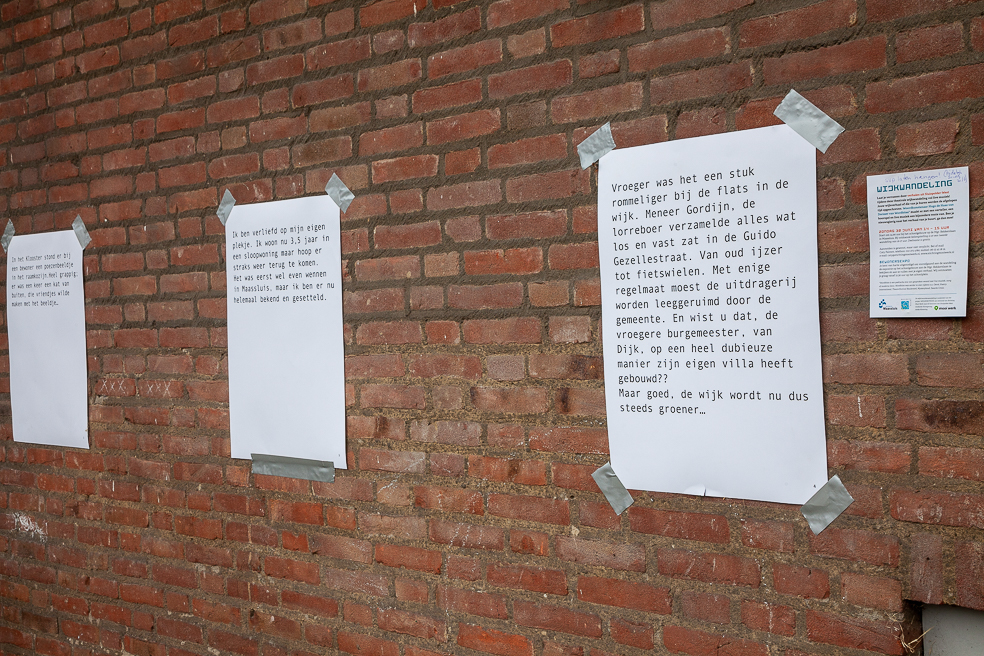 In het Klooster stond er bij
een bewoner een poezenbeeldje
in het raamkozijn. Heel grappig,
er was een keer een kat van
buiten, die vriendjes wilde
maken met het beeldje…
Ik ben verliefd op mijn eigen
plekje. Ik woon nu 3,5 jaar in
een sloopwoning maar hoop er
straks weer terug te komen.
Het was eerst wel even wennen
in Maassluis, maar ik ben er nu
helemaal bekend en gesetteld.
Vroeger was het een stuk
rommeliger bij de flats in de
wijk. Meneer Gordijn, de
lorreboer verzamelde alles wat
los en vast zat in de Guido
Gezellestraat. Van oud ijzer
tot fietswielen. Met enige
regelmaat moest de uitdragerij
worden leeggeruimd door de
gemeente. En wist u dat, de
vroegere burgemeester, van
Dijk, op een heel dubieuze
manier zijn eigen villa heeft
gebouwd??
Maar goed, de wijk wordt nu dus
steeds groener…
WIJKWANDELING
ZONDAG 20 JUNI VAN 14 - 15 UUR
Maassluis
XXX XXX